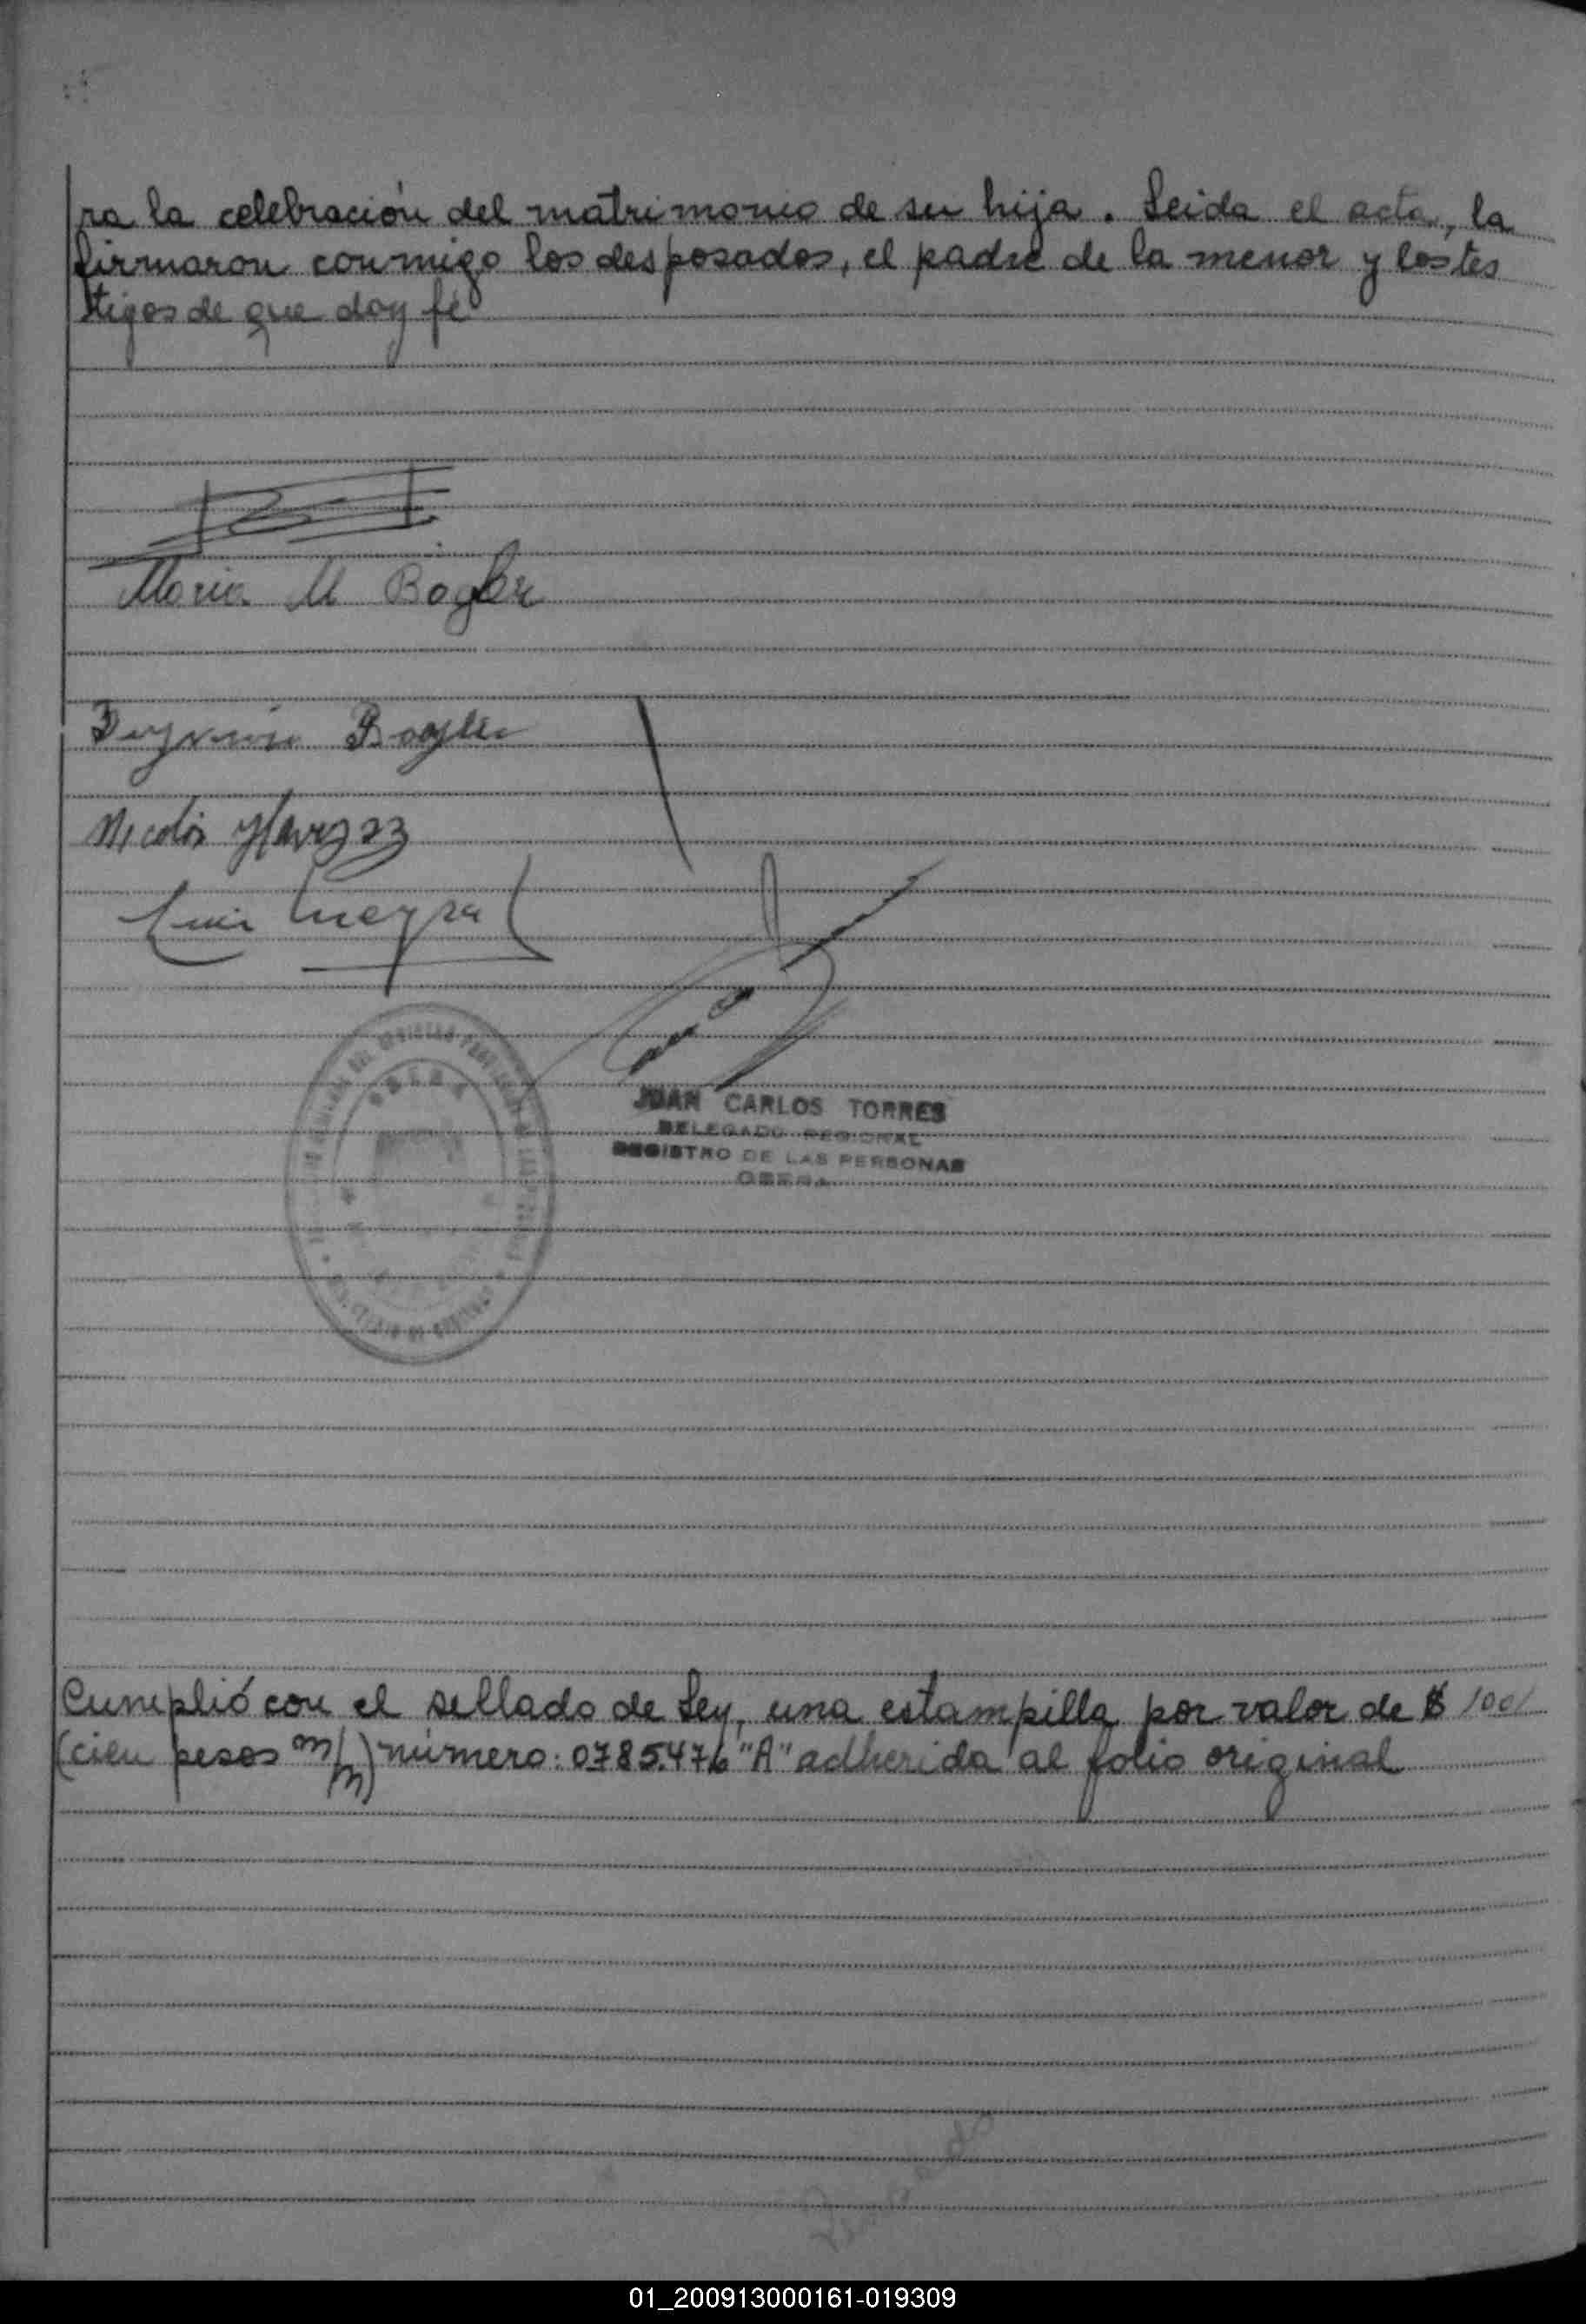 ra la celebración del matrimonio de su hija. Leida el acta, la
firmaron conmigo los desposados, el padre de la menor y los tes
tigos de que doy fé
Maria M Bogler
Bogler
Nicolás
Luis
JUAN CARLOS TORRES
DELEGADO REGIONAL
REGISTRO DE LAS PERSONAS
OBERA
Cumplió con el sellado de Ley, una estampilla por valor de $ 100/
(cien pesos m/n) número: 0785.476 "A" adherida al folio original
01_200913000161-019309